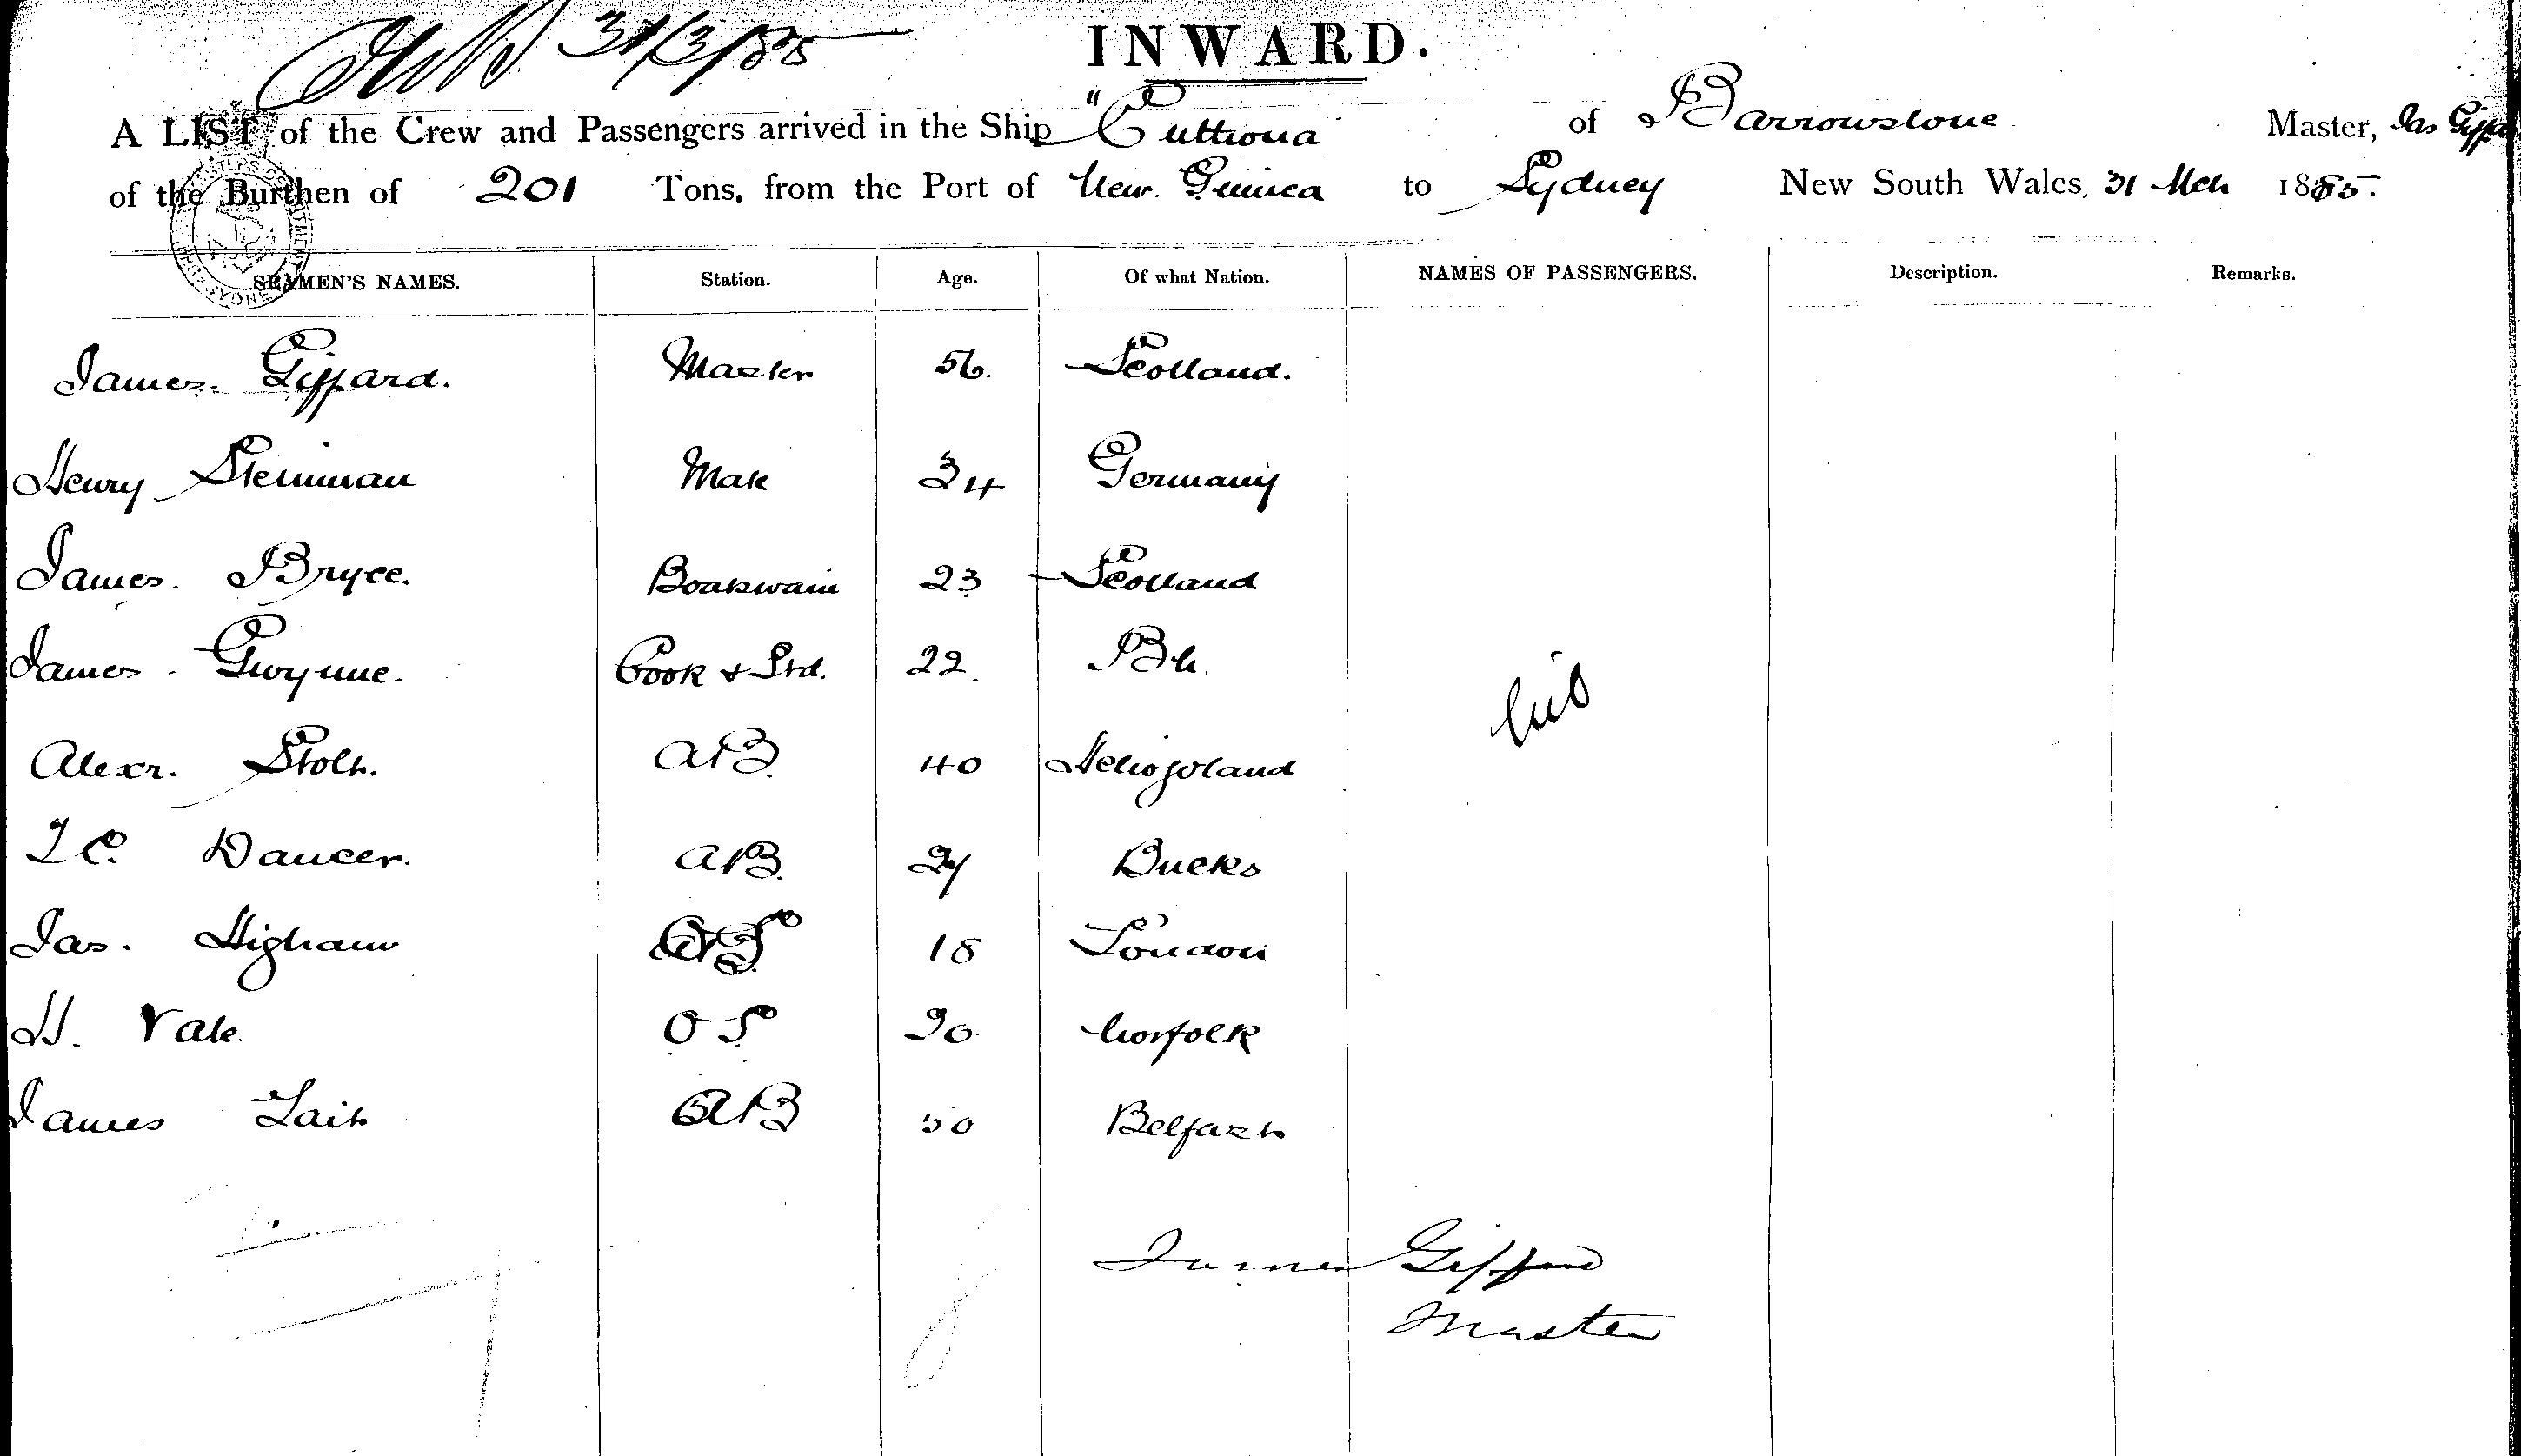 31/3/85
INWARD.
A LIST of the Crew and Passengers arrived in the Ship "Cuttiona of Barrowstone Master, Jas Giff
of the Burthen of 201 Tons, from the Port of New. Guinea to Sydney New South Wales, 31 Mch 1885.
SEAMEN'S NAMES. Station. Age. Of what Nation. NAMES OF PASSENGERS. Description. Remarks.
James. Giffard. Master 56. Scotland.
Henry Steinman Mate 34 Germany
James. Bryce. Boatswain 23 Scotland
James. Gwynne. Cook & Std. 22. Bh.
Nil
Alexr. Stolt. AB. 40 Heligoland
T C. Dancer. AB. 27 Bucks
Jas. Higham OS 18 London
H. Vale. OS 20. Norfolk
James Tait AB 50 Belfast
James Giffard
Master